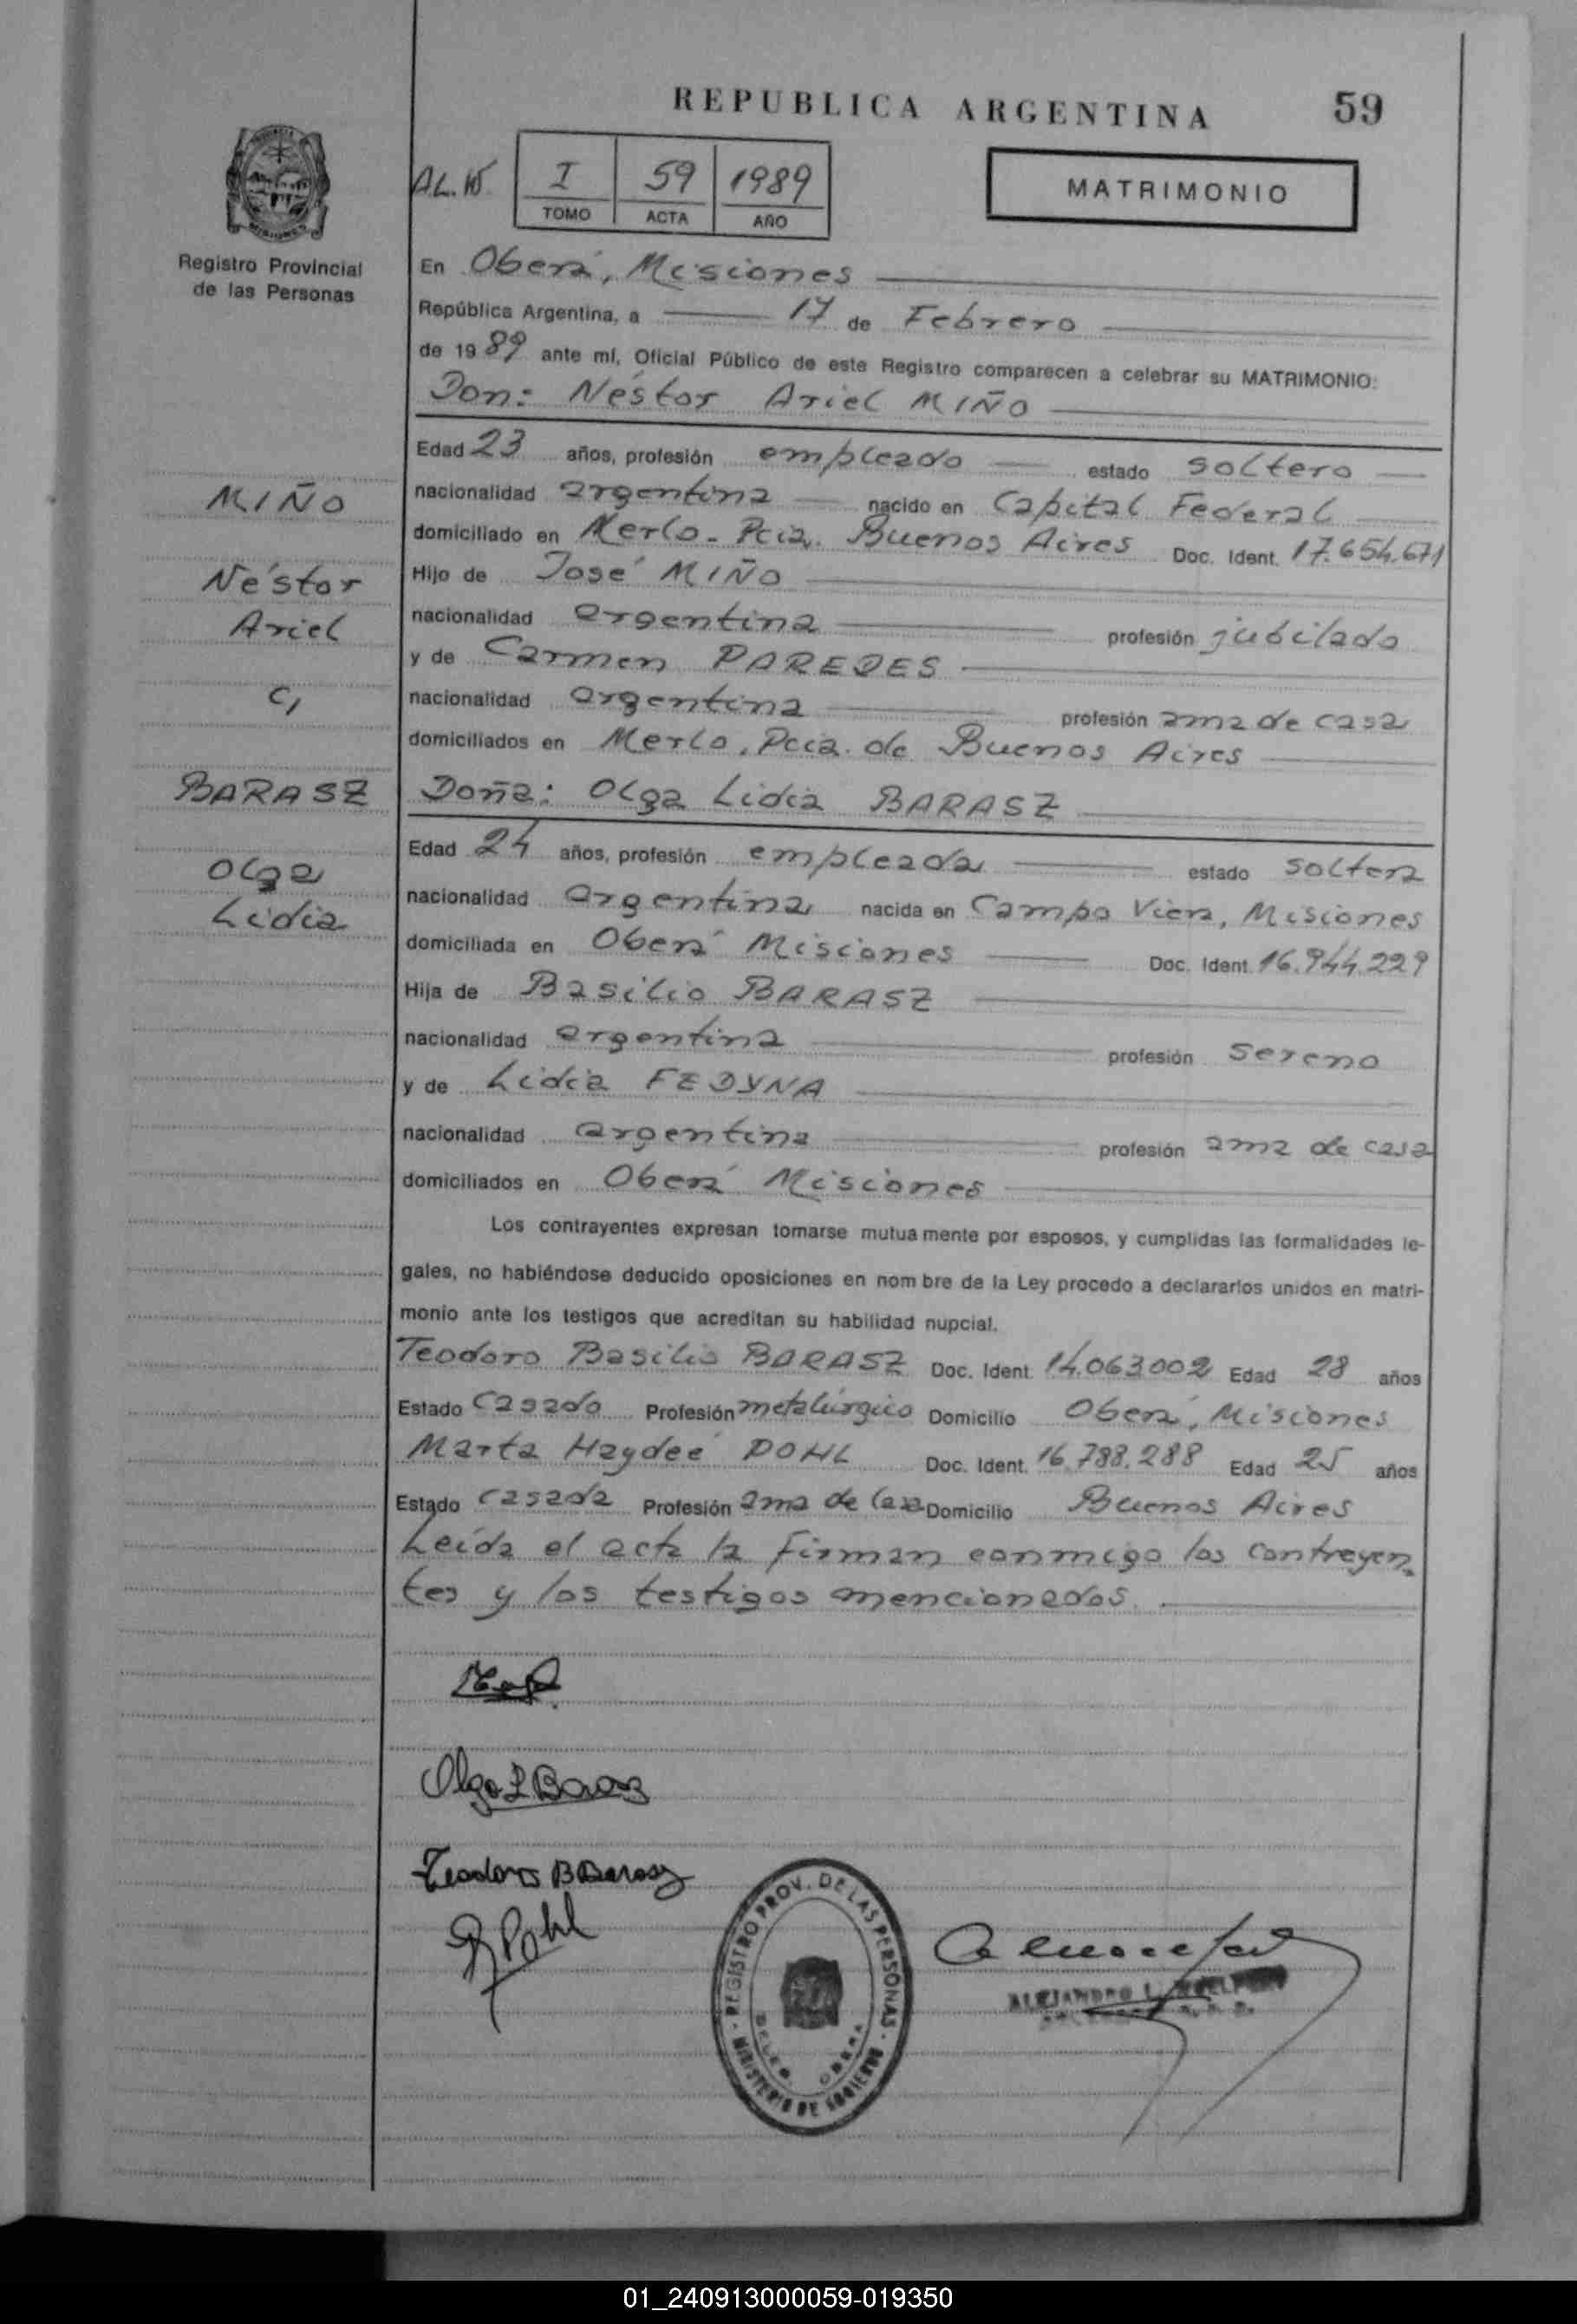 REPUBLICA ARGENTINA 59
I 59 1989
TOMO ACTA AÑO
MATRIMONIO
Registro Provincial
de las Personas
En Oberá, Misiones
República Argentina, a 17 de Febrero
de 1989 ante mí, Oficial Público de este Registro comparecen a celebrar su MATRIMONIO:
Don: Néstor Ariel MIÑO
Edad 23 años, profesión empleado estado soltero
nacionalidad argentina nacido en Capital Federal
domiciliado en Merlo - Pcia. Buenos Aires Doc. Ident. 17.654.671
Hijo de José MIÑO
nacionalidad argentina profesión jubilado
y de Carmen PAREDES
nacionalidad argentina profesión ama de casa
domiciliados en Merlo, Pcia. de Buenos Aires
MIÑO
Néstor
Ariel
c/
BARASZ
Olga
Lidia
Doña: Olga Lidia BARASZ
Edad 24 años, profesión empleada estado soltera
nacionalidad argentina nacida en Campo Viera, Misiones
domiciliada en Oberá Misiones Doc. Ident. 16.944.229
Hija de Basilio BARASZ
nacionalidad argentina profesión sereno
y de Lidia FEDYNA
nacionalidad argentina profesión ama de casa
domiciliados en Oberá Misiones
Los contrayentes expresan tomarse mutuamente por esposos, y cumplidas las formalidades le-
gales, no habiéndose deducido oposiciones en nombre de la Ley procedo a declararlos unidos en matri-
monio ante los testigos que acreditan su habilidad nupcial.
Teodoro Basilio BARASZ Doc. Ident. 14.063.002 Edad 28 años
Estado casado Profesión metalúrgico Domicilio Oberá, Misiones
Marta Haydeé POHL Doc. Ident. 16.788.288 Edad 25 años
Estado casada Profesión ama de casa Domicilio Buenos Aires
Leída el acta la firman conmigo los contrayen-
tes y los testigos mencionados.
Olga L Barasz
Teodoro B Barasz
Pohl
REGISTRO PROV. DE LAS PERSONAS
MINISTERIO DE GOBIERNO
ALEJANDRO L.
01_240913000059-019350